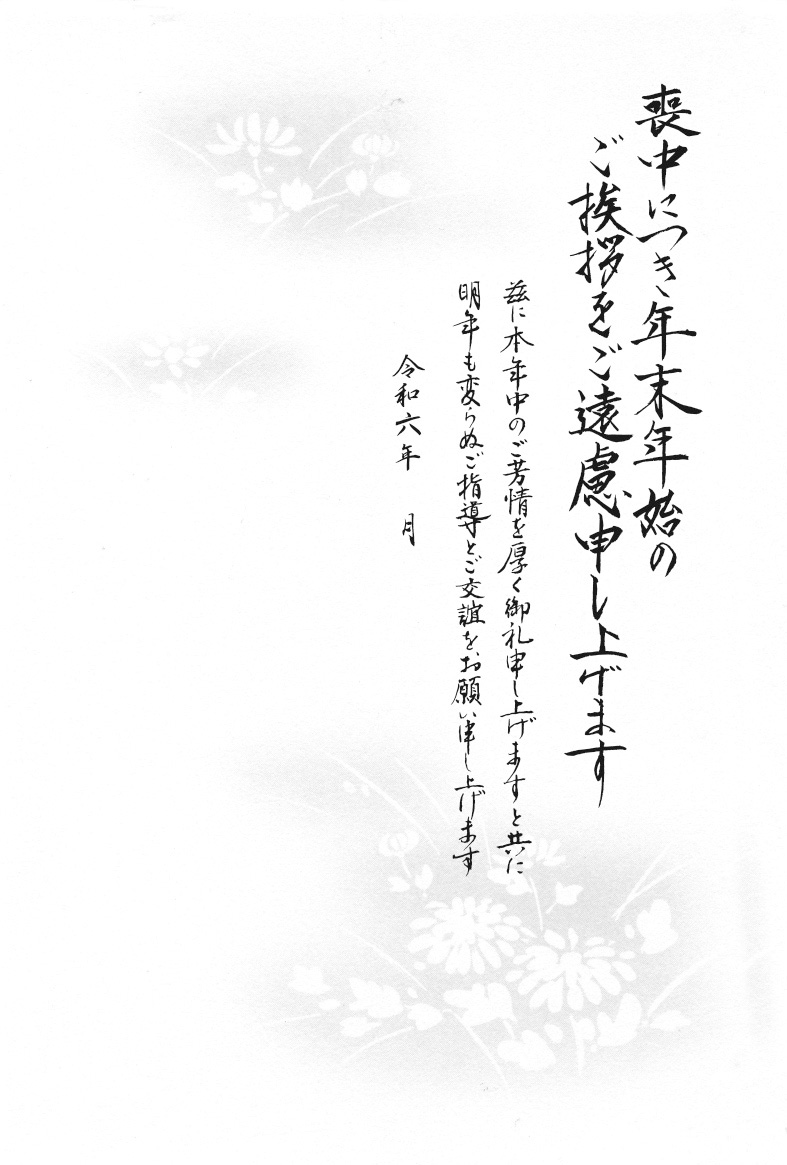 喪中につき年末年始の
ご挨拶をご遠慮申し上げます
茲に本年中のご芳情を厚く御礼申し上げますと共に
明年も変らぬご指導とご交誼をお願い申し上げます
令和六年 月